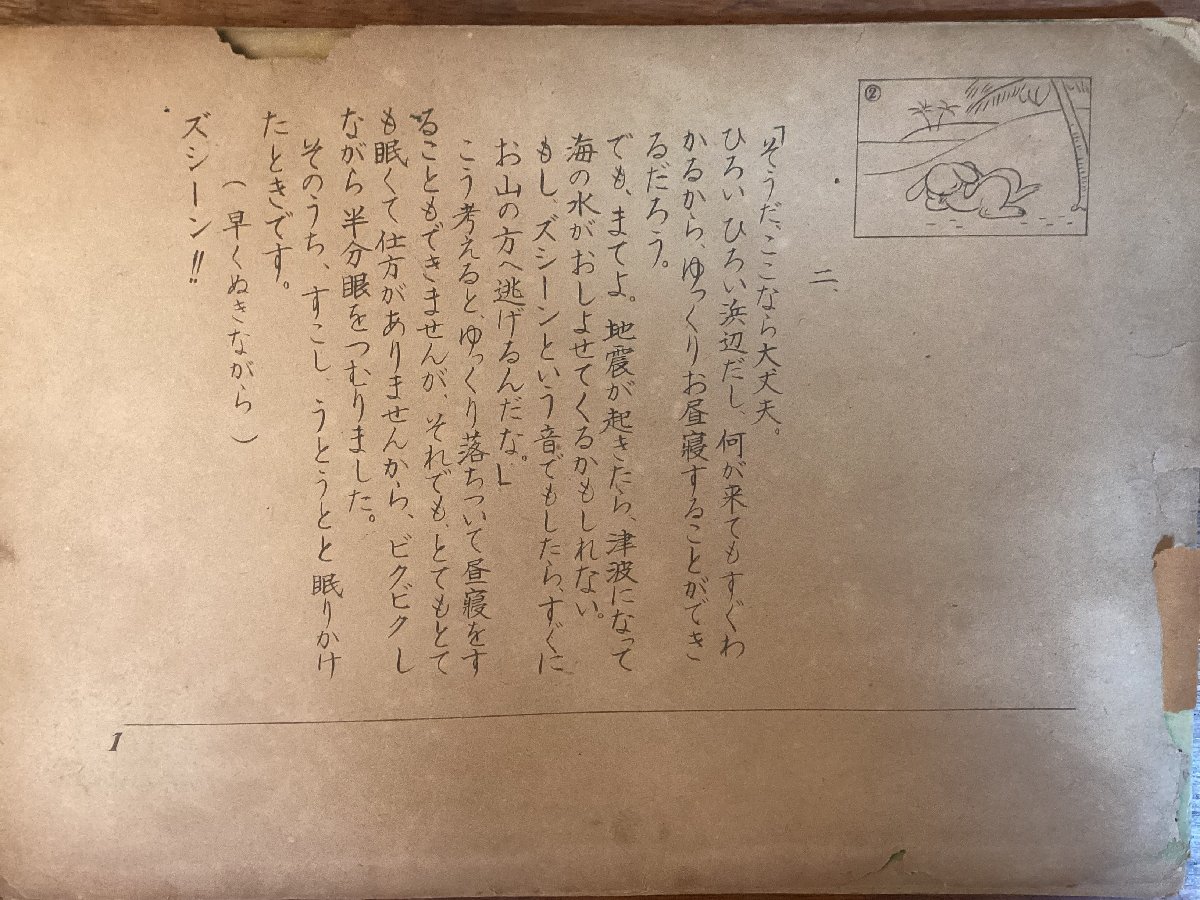 ②
二、
「そうだ、ここなら大丈夫。
ひろい、ひろい浜辺だし、何が来てもすぐわ
かるから、ゆっくりお昼寝することができ
るだろう。
でも、まてよ。地震が起きたら、津波になって
海の水がおしよせてくるかもしれない。
もし、ズシーンという音でもしたら、すぐに
お山の方へ逃げるんだな。」
こう考えると、ゆっくり落ちついて昼寝をす
ることもできませんが、それでも、とてもとて
も眠くて仕方がありませんから、ビクビクし
ながら半分眼をつむりました。
そのうち、すこし、うとうとと眠りかけ
たときです。
(早くぬきながら)
ズシーン!!
1